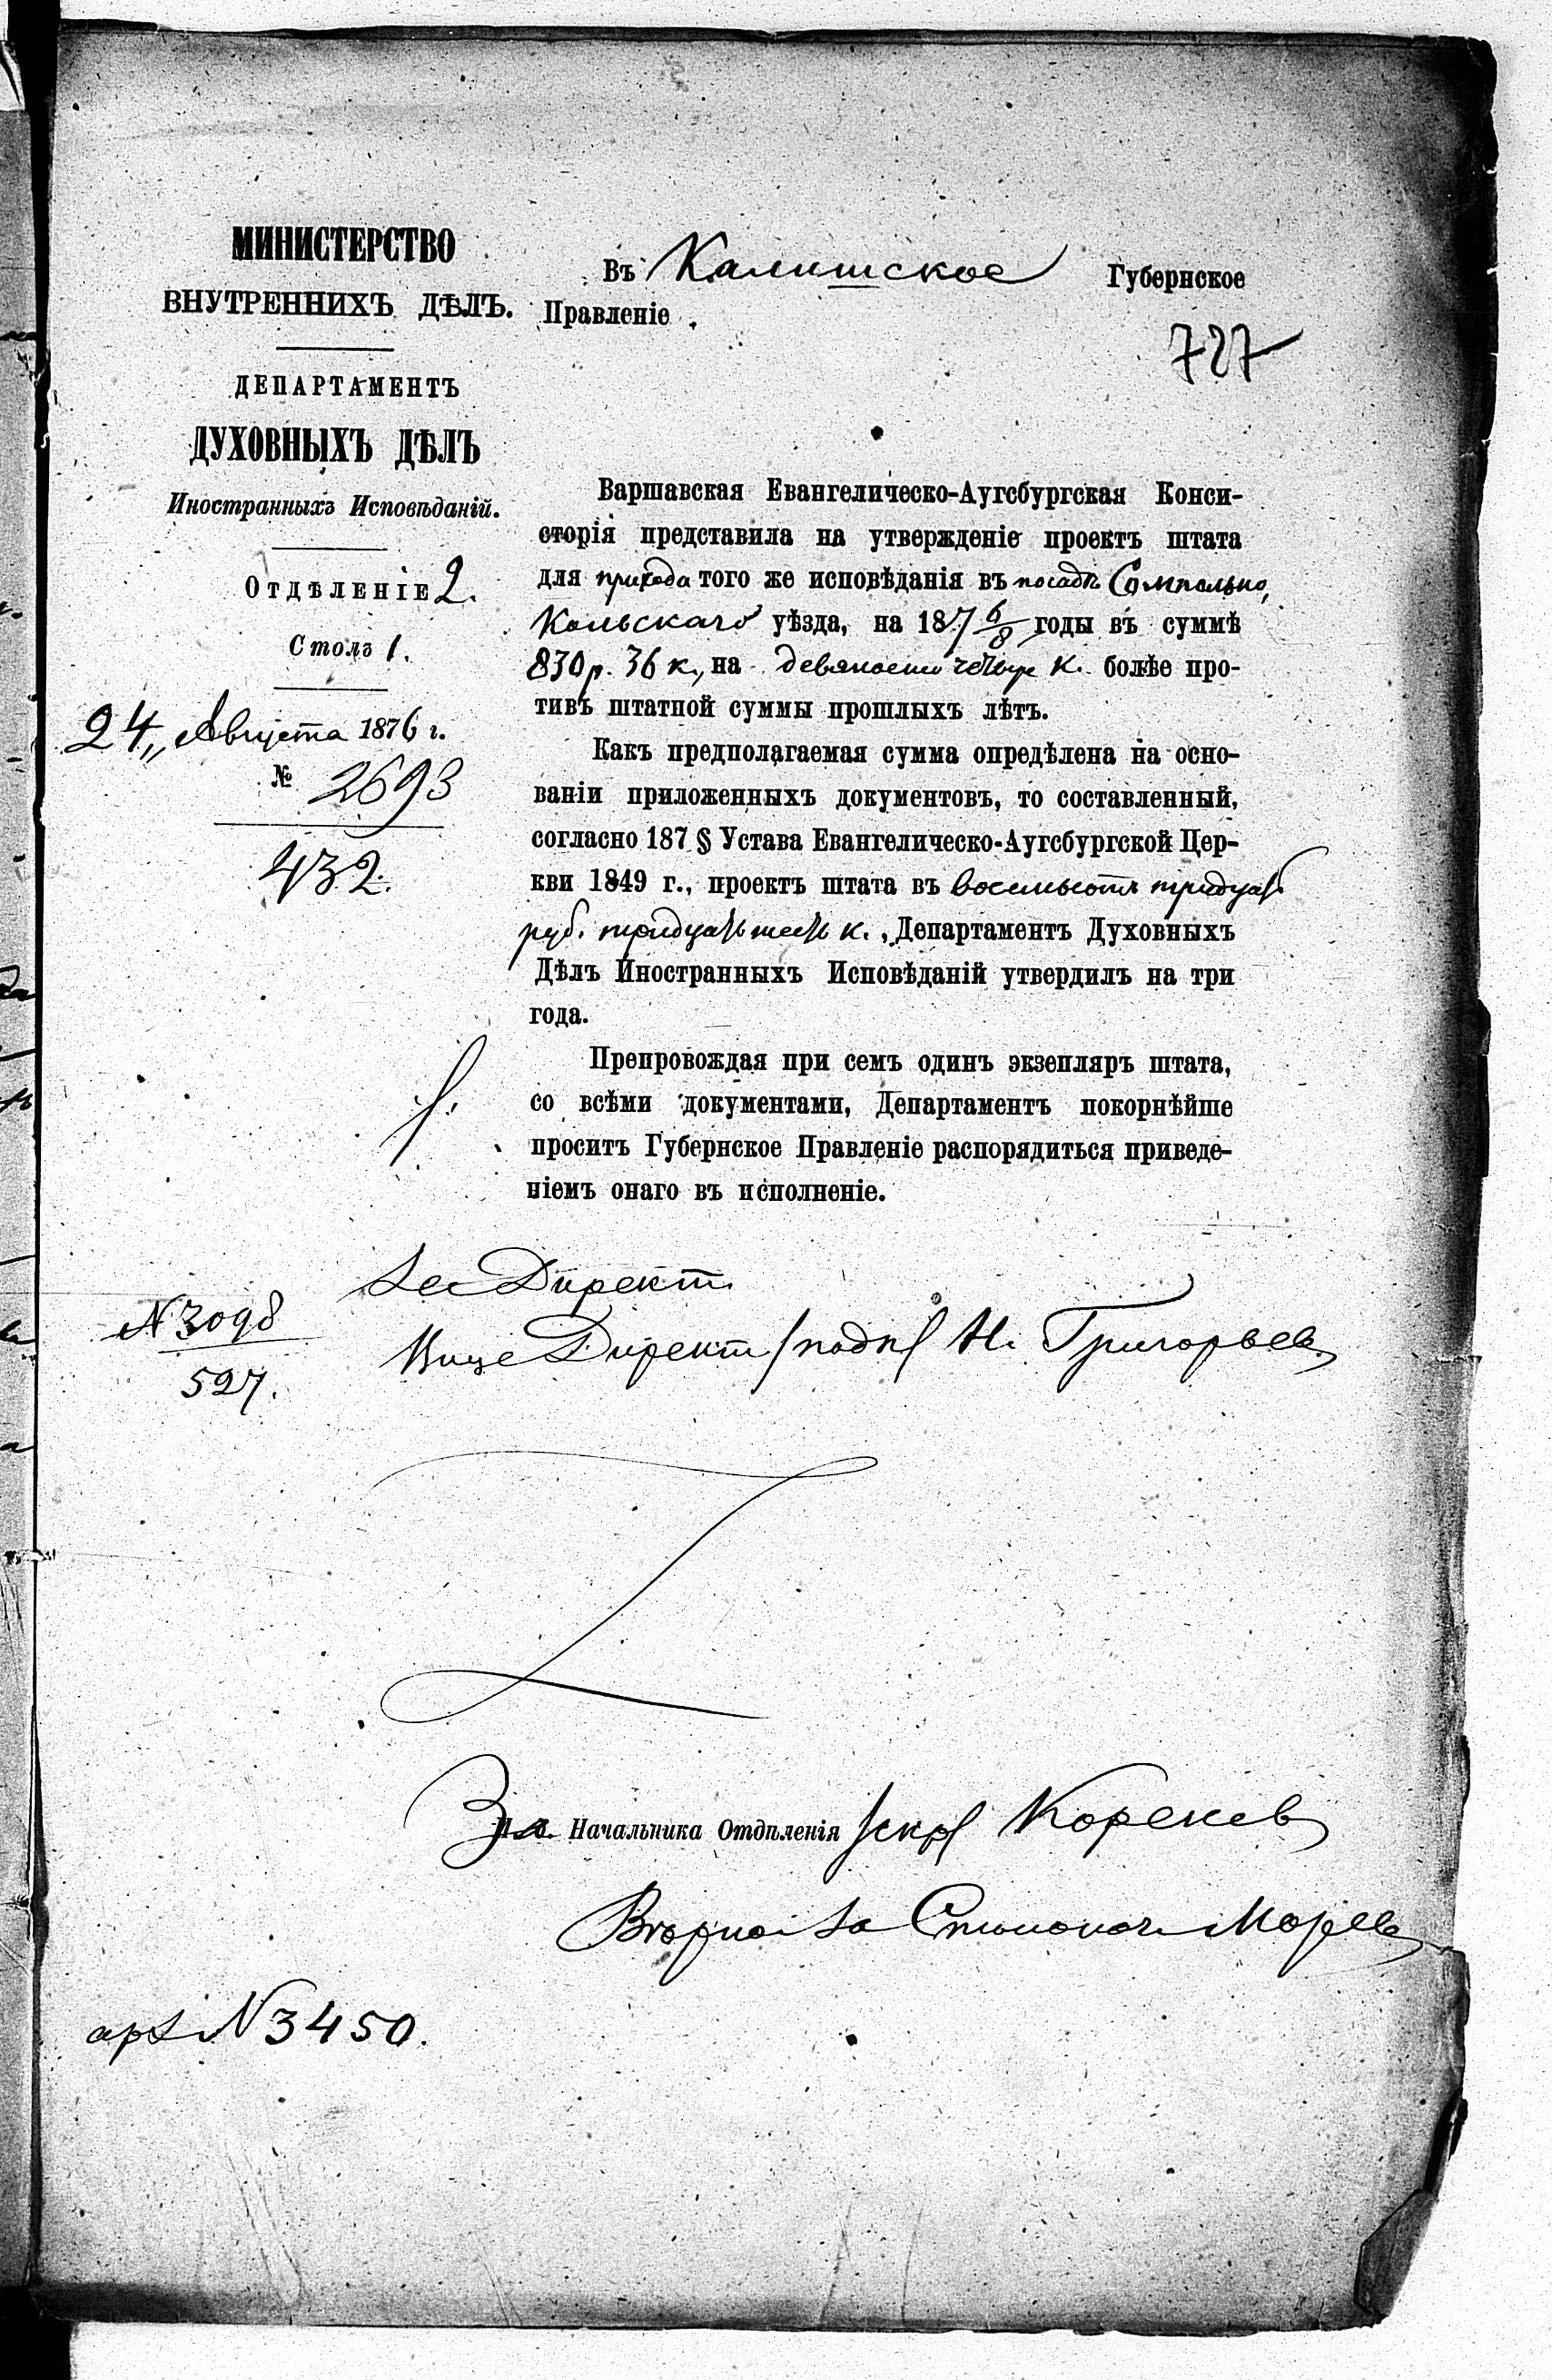 МИНИСТЕРСТВО
ВНУТРЕННИХЪ ДѢЛЪ.
ДЕПАРТАМЕНТЪ
ДУХОВНЫХЪ ДѢЛЪ
Иностранныхъ Исповѣданій.
Отдѣленіе 2.
Столъ 1.
24 „ Августа 1876 г.
№ 2693
432.
Въ Калишское Губернское
Правленіе.
727
Варшавская Евангелическо-Аугсбургская Конси-
сторія представила на утвержденіе проектъ штата
для прихода того же исповѣданія въ посадѣ Сомпольно,
Кольскаго уѣзда, на 187 6/8 годы въ суммѣ
830 р. 36 к., на девяносто четыре к. болѣе про-
тивъ штатной суммы прошлыхъ лѣтъ.
Какъ предполагаемая сумма опредѣлена на осно-
ваніи приложенныхъ документовъ, то составленный,
согласно 187 § Устава Евангелическо-Аугсбургской Цер-
кви 1849 г., проектъ штата въ восемьсотъ тридцать
руб. тридцать шесть к., Департаментъ Духовныхъ
Дѣлъ Иностранныхъ Исповѣданій утвердилъ на три
года.
Препровождая при семъ одинъ экзепляръ штата,
со всѣми документами, Департаментъ покорнѣйше
проситъ Губернское Правленіе распорядиться приведе-
ніемъ онаго въ исполненіе.
За Директ.
Вице Директ /подп/ Н. Григорьев
N 3098
527.
За Начальника Отдѣленія /скр/ Коренев
N 3450.